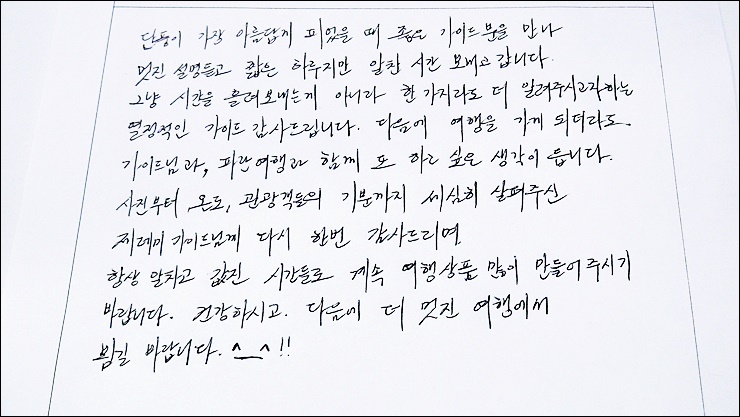 단풍이 가장 아름답게 피었을 때 좋은 가이드 분을 만나
멋진 설명듣고 짧은 하루지만 알찬 시간 보내고 갑니다.
그냥 시간을 흘려보내는게 아니라 한 가지라도 더 알려주시고자하는
열정적인 가이드 감사드립니다. 다음에 여행을 가게 되더라도
가이드님과, 파란여행과 함께 또 하고 싶은 생각이 듭니다.
사진부터, 온도, 관광객들의 기분까지 세심히 살펴주신
찌레미 가이드님께 다시 한번 감사드리며,
항상 알차고 값진 시간들로 계속 여행상품 많이 만들어주시기
바랍니다. 건강하시고. 다음에 더 멋진 여행에서
뵙길 바랍니다. ^__^!!